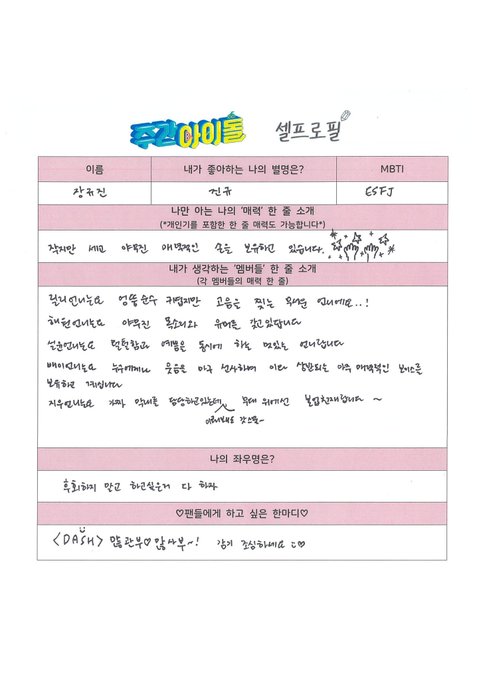 주간아이돌 셀프로필
이름 내가 좋아하는 나의 별명은? MBTI
장규진 진규 ESFJ
나만 아는 나의 '매력' 한 줄 소개
(*개인기를 포함한 한 줄 매력도 가능합니다*)
작지만 세고 야무진 매력적인 손을 보유하고 있습니다.
내가 생각하는 '멤버들' 한 줄 소개
(각 멤버들의 매력 한 줄)
릴리언니는요 엉뚱순수 귀엽지만 고음을 찢는 무서운 언니에요..!
해원언니는요 야무진 목소리와 유머를 갖고있답니다
설윤언니는요 털털함과 예쁨을 동시에 하는 멋있는 언니랍니다
배이언니는요 누구에게나 웃음을 마구 선사하며 이와 상반되는 아주 매력적인 보이스를
보유하고 계십니다
지우언니는요 가짜 막내를 담당하고있는데 무대 위에선 몰입천재랍니다 ~
나의 좌우명은?
후회하지 말고 하고싶은거 다 하자
♡팬들에게 하고 싶은 한마디♡
<DASH> 많관부♡ 많사부~! 감기 조심하세요